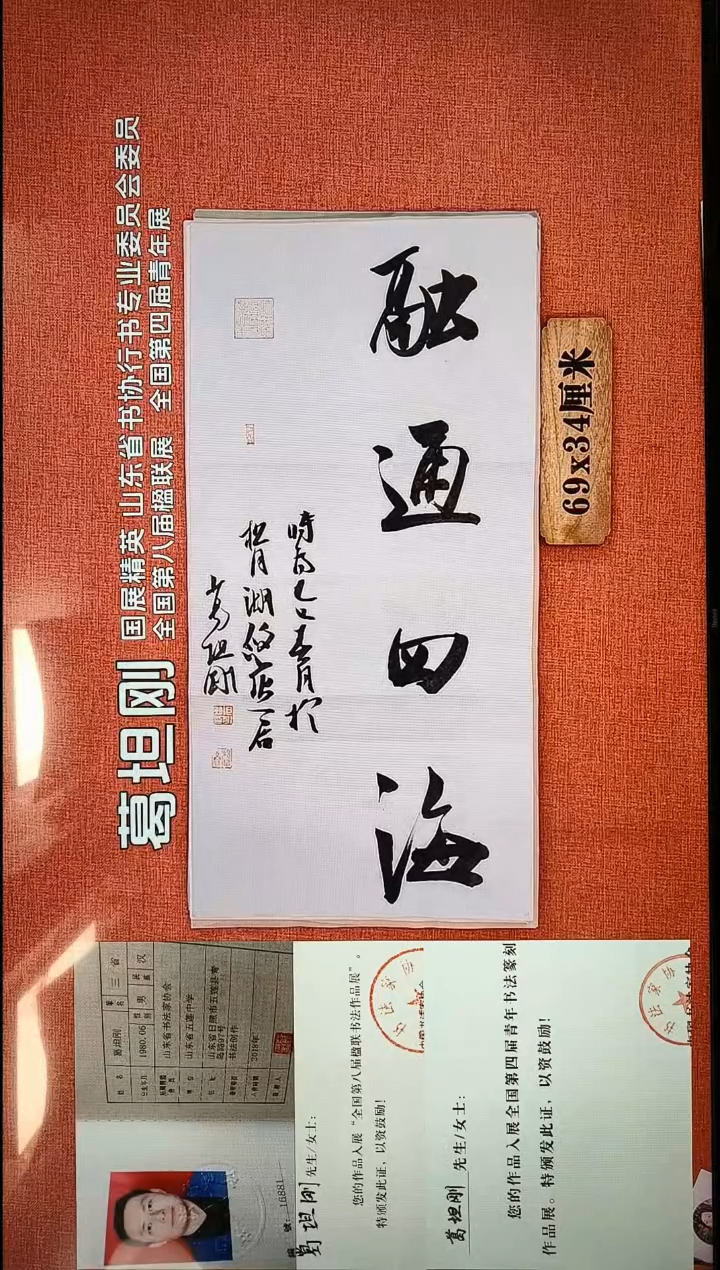 葛坦刚
国展精英 山东省书协行书专业委员会委员
全国第八届楹联展 全国第四届青年展
融通四海
乙巳五月於
月湖
葛坦刚
69x34厘米
姓名 葛坦刚 三省
出生年月 1980.06 性别 男 民族 汉
山东省书法家协会
山东省五莲中学
山东省日照市五莲县青
岛路97号
书法创作
2018年
號: 16881
葛坦刚 先生/女士：
您的作品入展“全国第八届楹联书法作品展”。
特颁发此证，以资鼓励！
葛坦刚 先生/女士：
您的作品入展全国第四届青年书法篆刻
作品展。特颁发此证，以资鼓励！